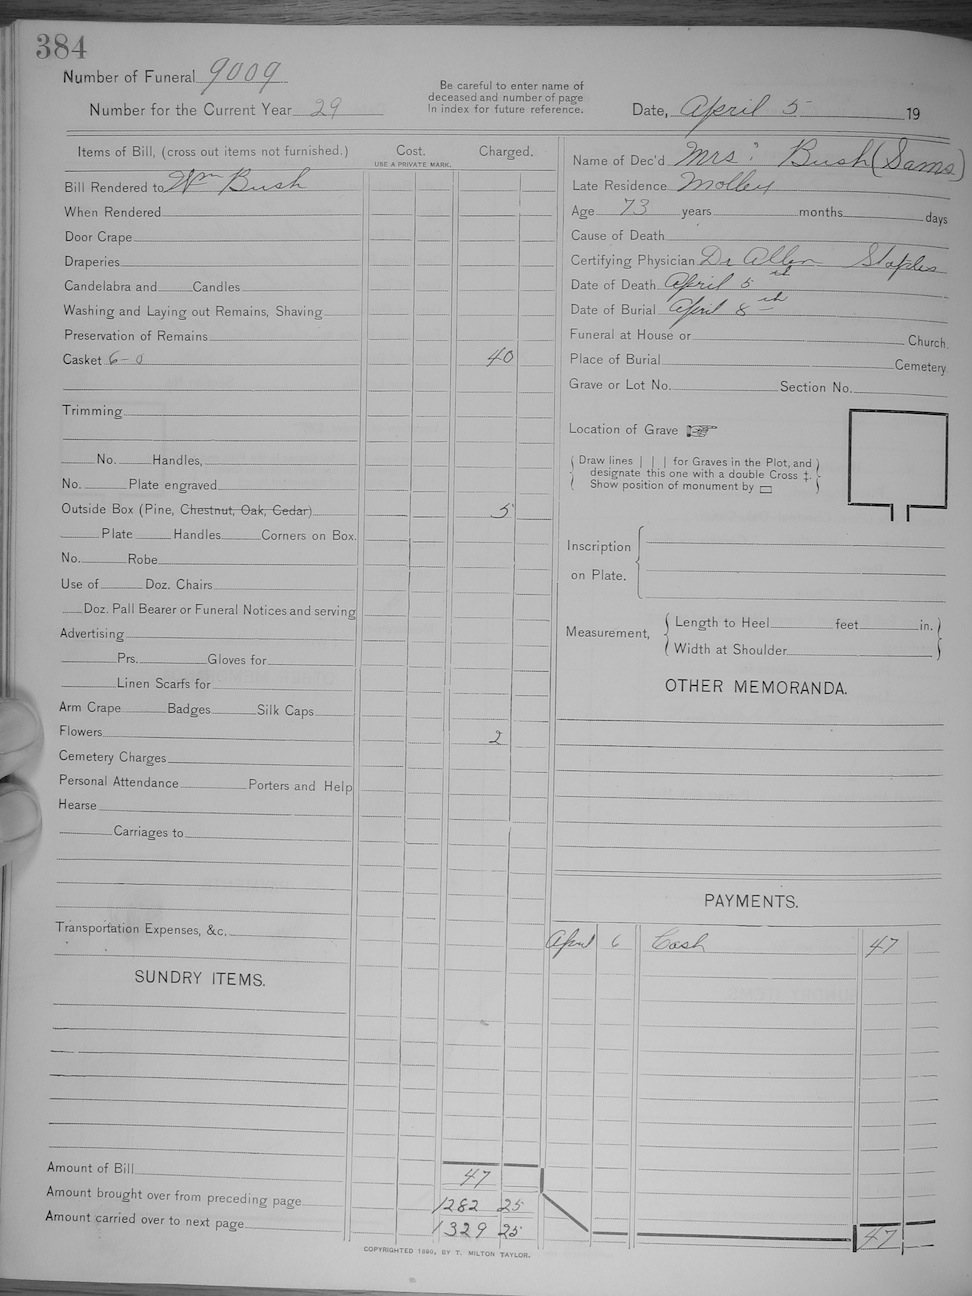 384
Number of Funeral 9009
Number for the Current Year 29
Be careful to enter name of
deceased and number of page
In index for future reference.
Date, April 5 19
Items of Bill, (cross out items not furnished.) Cost. Charged.
USE A PRIVATE MARK.
Bill Rendered to Wm Bush
When Rendered
Door Crape
Draperies
Candelabra and Candles
Washing and Laying out Remains, Shaving
Preservation of Remains
Casket 6-0 40
Trimming
No. Handles,
No. Plate engraved
Outside Box (Pine, Chestnut, Oak, Cedar) 5
Plate Handles Corners on Box.
No. Robe
Use of Doz. Chairs
Doz. Pall Bearer or Funeral Notices and serving
Advertising
Prs. Gloves for
Linen Scarfs for
Arm Crape Badges Silk Caps
Flowers 2
Cemetery Charges
Personal Attendance Porters and Help
Hearse
Carriages to
Transportation Expenses, &c.
SUNDRY ITEMS.
Amount of Bill 47
Amount brought over from preceding page 1282 25
Amount carried over to next page 1329 25
Name of Dec'd Mrs. Bush (Sams)
Late Residence Molley
Age 73 years months days
Cause of Death
Certifying Physician Dr Allen Staples
Date of Death April 5 th
Date of Burial April 8 th
Funeral at House or Church.
Place of Burial Cemetery.
Grave or Lot No. Section No.
Location of Grave
Draw lines | | | for Graves in the Plot, and
designate this one with a double Cross ‡.
Show position of monument by ▭
Inscription
on Plate.
Measurement, Length to Heel feet in.
Width at Shoulder
OTHER MEMORANDA.
PAYMENTS.
April 6 Cash 47
47
COPYRIGHTED 1890, BY T. MILTON TAYLOR.